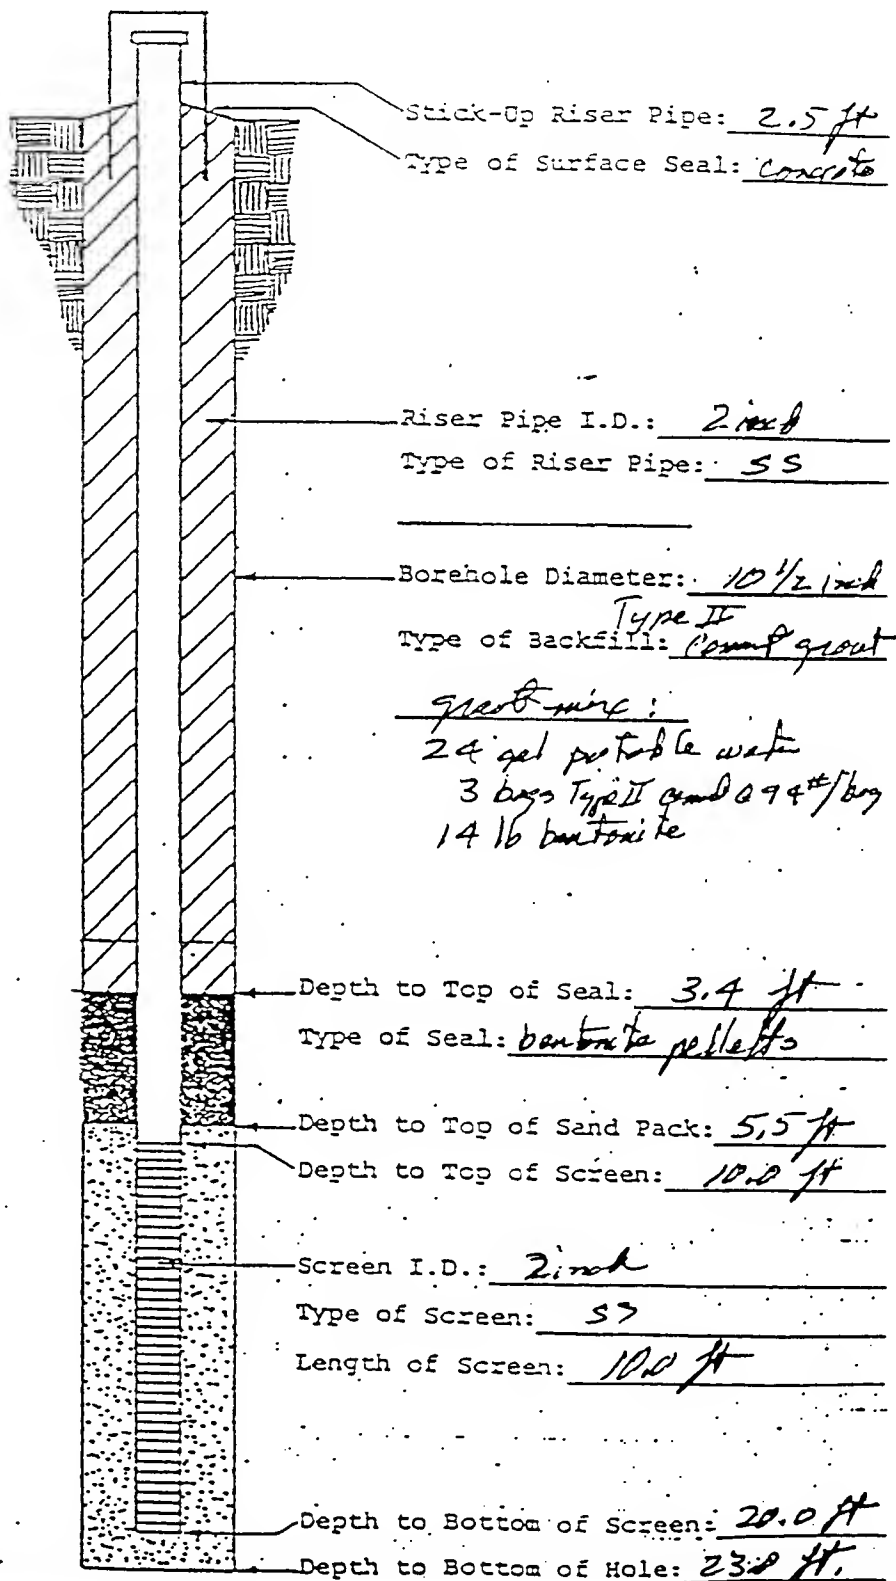 Stick-Up Riser Pipe: 2.5 ft
Type of Surface Seal: concrete
Riser Pipe I.D.: 2 inch
Type of Riser Pipe: SS
Borehole Diameter: 10 1/2 inch
Type II
Type of Backfill: cement grout
grout mix:
24 gal potable water
3 bags Type II cement @ 94#/bag
14 lb bentonite
Depth to Top of Seal: 3.4 ft
Type of Seal: bentonite pellets
Depth to Top of Sand Pack: 5.5 ft
Depth to Top of Screen: 10.0 ft
Screen I.D.: 2 inch
Type of Screen: SS
Length of Screen: 10.0 ft
Depth to Bottom of Screen: 20.0 ft
Depth to Bottom of Hole: ft.